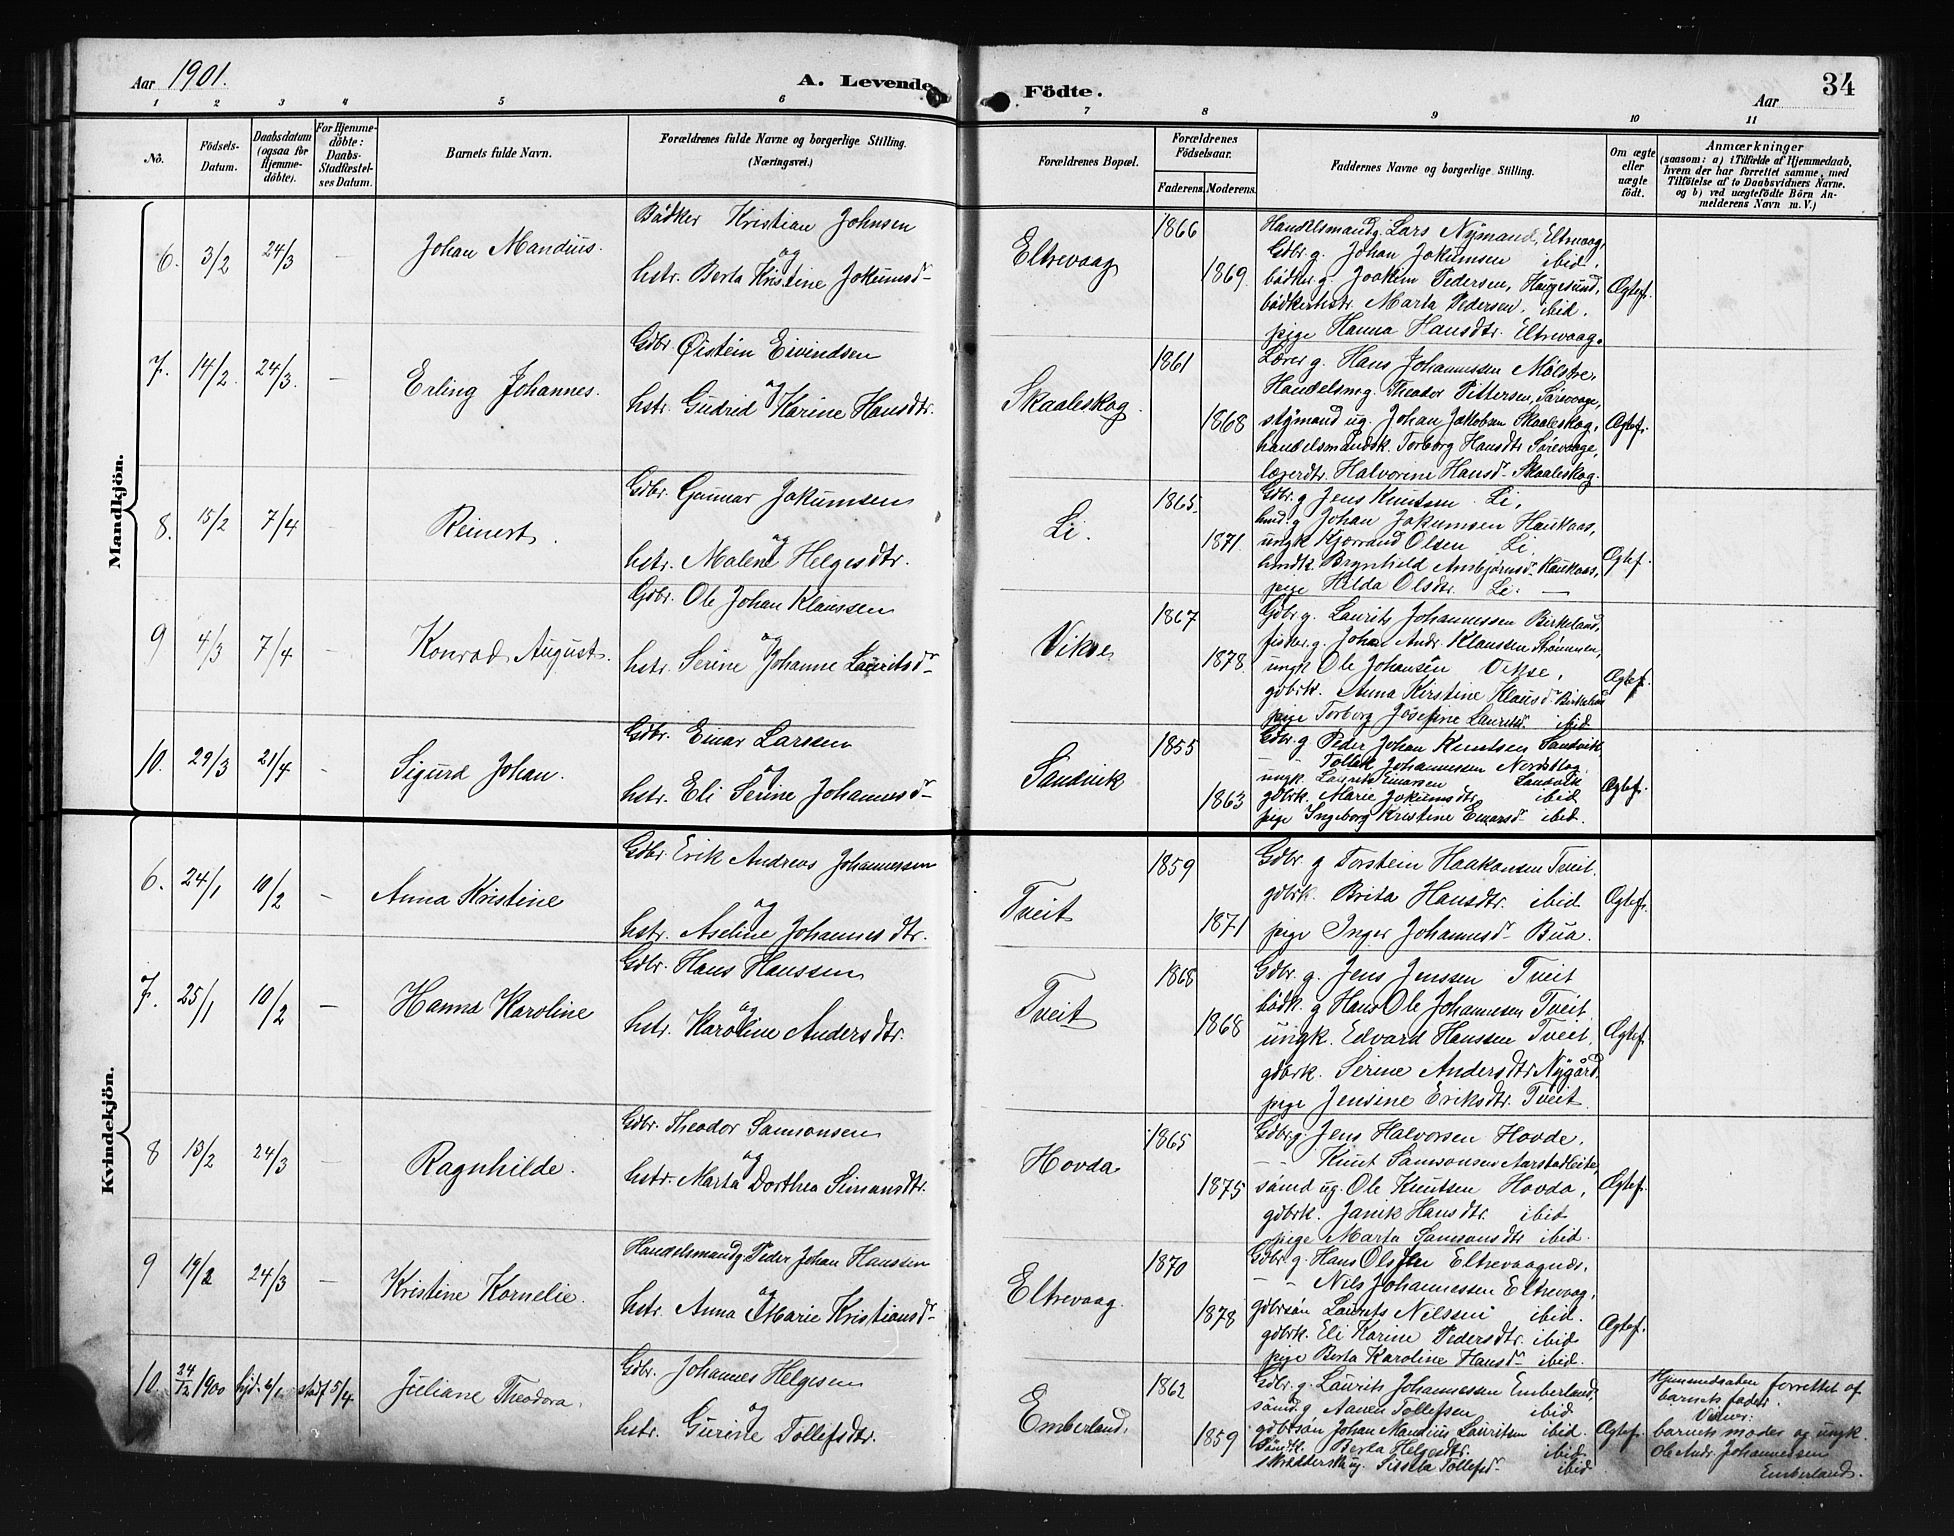 Aar 1901.
A. Levende Födte.
34
Aar
1 2 3 4 5 6 7 8 9 10 11
No.
Födsels-
Datum.
Daabsdatum
(ogsaa for
Hjemme-
döbte).
For Hjemme-
döbte:
Daabs-
Stadfæstel-
ses Datum.
Barnets fulde Navn.
Forældrenes fulde Navne og borgerlige Stilling.
(Næringsvei.)
Forældrenes Bopæl.
Forældrenes
Födselsaar.
Faderens. Moderens.
Faddernes Navne og borgerlige Stilling.
Om ægte
eller
uægte
födt.
Anmærkninger
(saasom: a) i Tilfælde af Hjemmedaab,
hvem der har forrettet samme, med
Tilföielse af to Daabsvidners Navne.
og b) ved uægtefödte Börn An-
melderens Navn m. V.)
Mandkjön.
6. 3/2 24/3 — Johan Mandius.
Bödker Kristian Johnsen
og
hstr. Berta Kristine Jokumsd
Eltrevaag
1866
1869
Handelsmand g. Lars Nymand, Eltrevaag,
Gdbr. g. Johan Jokumsen ibid,
bödker g. Joakim Pedersen, Haugesund,
bödkerhstr. Marta Pedersen, ibid.
pige Hanna Hansdtr. Eltrevaag.
Ægtef.
7. 14/2. 24/3. — Erling Johannes.
Gdbr. Øistein Eivindsen
og
hstr. Gudrid Karine Hansdtr.
Skaaleskog.
1861
1868
Lærer g. Hans Johannessen Mölstre,
Handelsm g. Theodor Pittersen, Sörevaage,
stymand ug. Johan Jakobsen Skaaleskog,
handelsmandsk. Torborg Hansdtr Sörevaage,
lærerdtr. Halvorine Hansd. Skaaleskog.
Ægtef.
8. 15/2 7/4 Reinert.
Gdbr. Gunnar Jokumsen
og
hstr. Malene Helgesdtr.
Li.
1865.
1871.
Gdbr. g Jens Knutsen Li,
hmd. g Johan Jokumsen Haukaas,
ungk. Kjerrand Olsen Li
hmdk. Brynhild Anbjörnsd. Haukaas,
pige Hilda Olsdtr. Li. —
Ægtef.
9 4/3 7/4 Konrad August.
Gdbr. Ole Johan Klaussen
og
hstr. Serine Johanne Lauritsdr
Vikse
1867
1878.
Gdbr g. Laurits Johannessen Birkeland,
fisker g. Johan Andr. Klaussen Strömmen,
ungk. Ole Johansen Vikse,
gdbrk. Anna Kirstine Klausd.
pige Torborg Josefine Lauritsd. ibid
Ægtef.
10. 29/3 21/4 — Sigurd Johan.
Gdbr. Einar Larssen
og
hstr. Eli Serine Johannesdr
Sandvik
1855
1863
Gdbr. g Peder Johan Knutsen Sandvik
— — Tollek Johannessen Nordskog
ungk. Laurits Einarsen Sandvik
gdbrk. Marie Jokumsdtr. ibid
pige Ingeborg Kristine Einarsd ibid.
Ægtef.
Kvindekjön.
6. 24/1 10/2 — Anna Kristine
Gdbr. Erik Andreas Johannessen
og
hstr. Aseline Johannesdtr.
Tveit
1859
1871
Gdbr. g Torstein Haakonsen Tveit
gdbrk. Brita Hansdtr. ibid
pige Inger Johannesd. Bua.
Ægtef.
7. 25/1 10/2 — Hanna Karoline
Gdbr. Hans Hanssen
og
hstr. Karoline Andersdtr.
Tveit
1868
1868
Gdbr. g. Jens Jenssen Tveit
bödk. g Hans Ole Johannesen Tveit
ungk. Edvard Hanssen Tveit.
gdbrk. Serine Andersdtr Nygård.
pige Jensine Eriksdtr. Tveit
Ægtef.
8 13/2 24/3 — Ragnhilde.
Gdbr. Theodor Samsonsen
og
hstr. Marta Dorthea Simonsdtr.
Hovda
1865
1875
Gdbr g. Jens Halvorsen Hovde,
— — Knut Samsonsen
sömd ug. Ole Knutsen Hovda,
gdbrk. Janik Hansdtr. ibid
pige Marta Samsonsdtr ibid.
Ægtef.
9 19/2 24/3 — Kristine Kornelie.
Handelsmand g. Peder Johan Hanssen
og
hstr. Anna Marie Kristiansdr
Eltrevaag.
1870
1878
Gdbr. g. Hans Olsen Eltrevaagnds,
— — Nils Johannessen Eltrevaag,
gdbrsön Laurits Nilssen ibid.
gdbrk. Eli Karine Pedersdtr. ibid
pige Berta Karoline Hansd ibid.
Ægtef.
10. 24/12 1900 hjd. 6/1 stadf 5/4 Juliane Theodora.
Gdbr. Johannes Helgesen
og
hstr. Gurine Tollefsdtr.
Emberland.
1862
1859
Gdbr. g. Laurits Johannessen Emberland,
sömd. g Aanen Tollefsen ibid
gdbrsön Johan Mandius Lauritsen ibid.
Berta Helgesdtr. ibid
Sissela Tollefsd ibid
Ægtef.
Hjemmedaaben forrettet af
barnets fader.
Vidner:
barnets moder og ungk.
Ole Andr. Johannessen
Emberland.